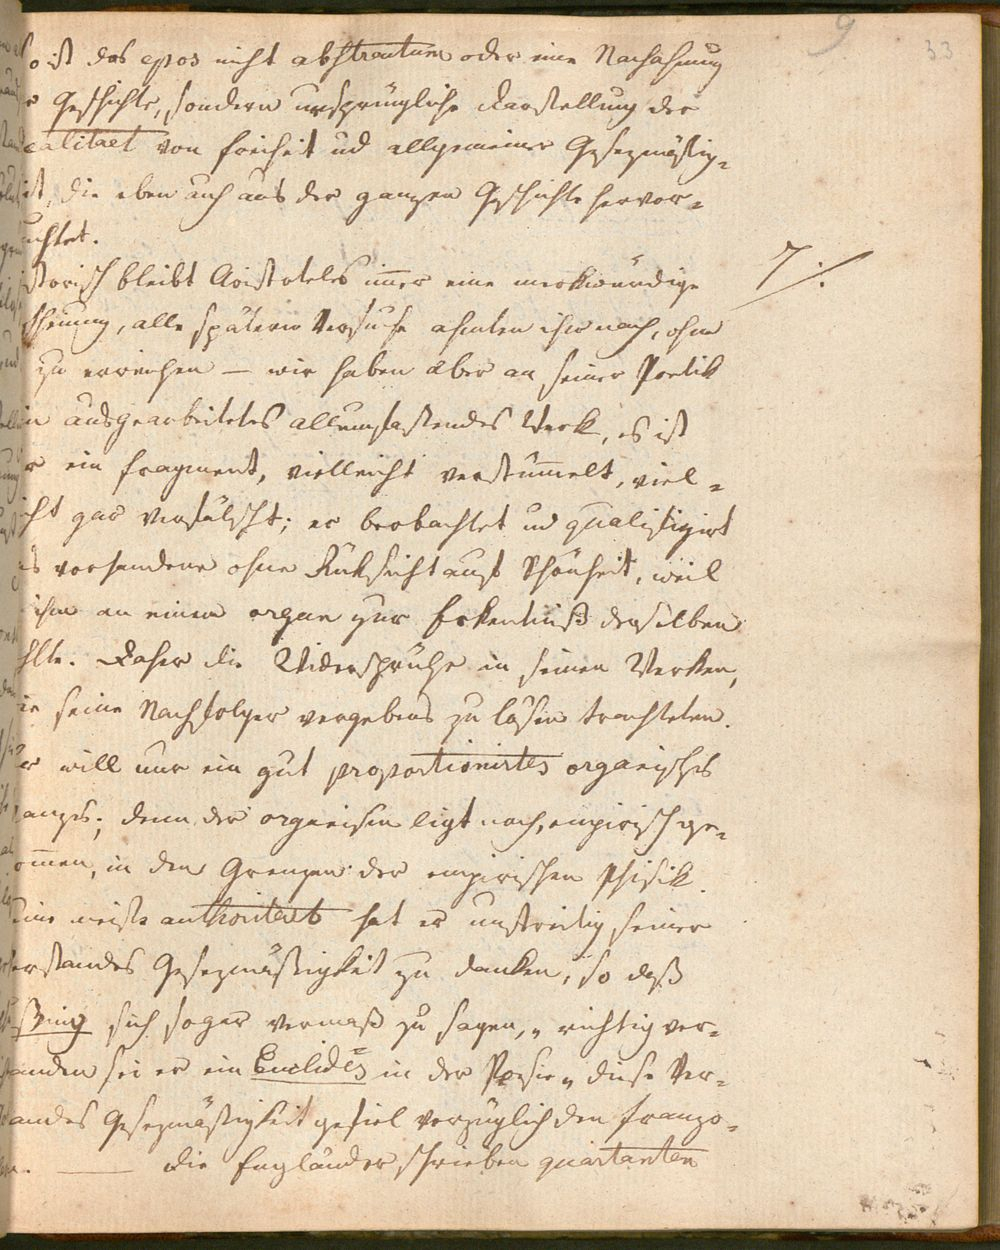 9 33
so ist das epos nicht abstractum oder eine Nachahmung
Geschichte, sondern ursprüngliche Darstellung der
ealitaet von freiheit ud allgemeiner Gesezmäßig-
it, die eben auch aus der ganzen Geschichte hervor-
uchtet.
storisch bleibt Aristoteles immer eine merkwürdige
cheinung, alle spätern Versuche ahmten ihm nach, ohne
zu erreichen — wir haben aber an seiner Poetik
in ausgearbeitetes allumfaßendes Werk, es ist
r ein fragment, vielleicht verstümmelt, viel-
icht gar verfälscht; er beobachtet ud qualifizirt
s vorhandene ohne Rüksicht aufs Schönheit, weil
ihm an einem organ zur Erkentniß derselben
hlte. Daher die Widersprüche in seinen Werken,
ie seine Nachfolger vergebens zu lösen trachteten.
r will nur ein gut proportionirtes organisches
anzes; denn der organism ligt noch, empirisch ge-
ommen, in den Grenzen der empirischen Phisik.
eine meiste authoritaet hat er unstreitig seiner
erstandes Gesezmäßigkeit zu danken, so daß
ßing sich sogar vermaß zu sagen, „richtig ver-
anden sei er ein Euclides in der Poesie„ diese Ver-
andes Gesezmäßigkeit gefiel vorzüglich den franzo-
en. — die Engländer schrieben quartanten
7 ./.